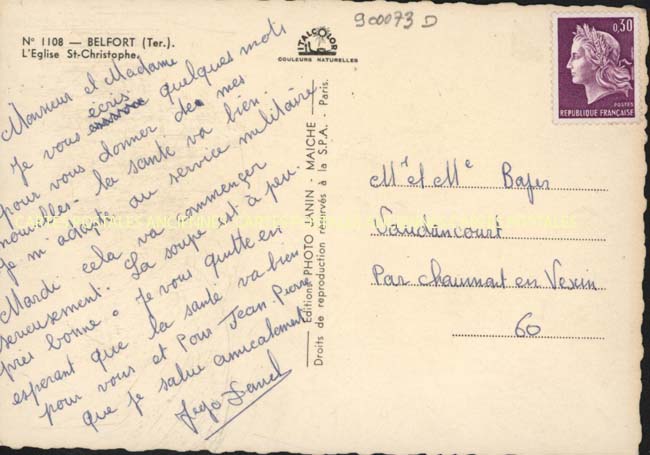 N° 1108 — BELFORT (Ter.).
L'Eglise St-Christophe.
ITALCOLOR
COULEURS NATURELLES
900073 D
0,30
POSTES
REPUBLIQUE FRANÇAISE
Monsieur et Madame
Je vous écris quelques mots
pour vous donner de mes
nouvelles - la santé va bien.
Je m'adapte au service militaire
Mardi cela va commencer
serieusement. La soupe est à peu
près bonne. Je vous quitte en
esperant que la santé va bien
pour vous et Pour Jean Pierre
que je salue amicalement
CARTES POSTALES ANCIENNES
Editions PHOTO JANIN - MAICHE
Droits de reproduction réservés à la S.P.A. - Paris.
Mr et Me
Vaudancourt
Par chaumont en Vexin
60